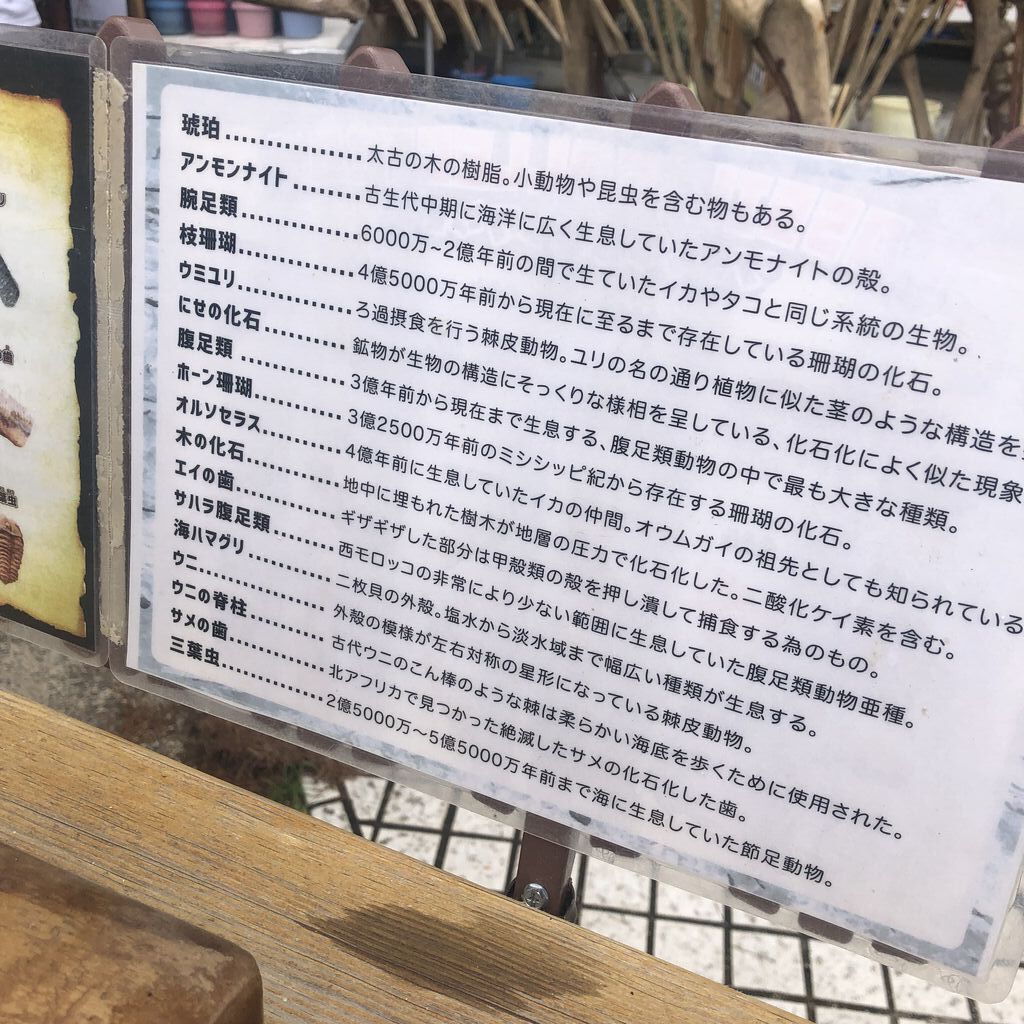 琥珀................太古の木の樹脂。小動物や昆虫を含む物もある。
アンモンナイト........古生代中期に海洋に広く生息していたアンモナイトの殻。
腕足類..............6000万~2億年前の間で生ていたイカやタコと同じ系統の生物。
枝珊瑚..............4億5000万年前から現在に至るまで存在している珊瑚の化石。
ウミユリ..............ろ過摂食を行う棘皮動物。ユリの名の通り植物に似た茎のような構造を
にせの化石..........鉱物が生物の構造にそっくりな様相を呈している、化石化によく似た現象
腹足類 .............3億年前から現在まで生息する、腹足類動物の中で最も大きな種類。
ホーン珊瑚...........3億2500万年前のミシシッピ紀から存在する珊瑚の化石。
オルソセラス..........4億年前に生息していたイカの仲間。オウムガイの祖先としても知られている
木の化石............地中に埋もれた樹木が地層の圧力で化石化した。二酸化ケイ素を含む。
エイの歯.............ギザギザした部分は甲殻類の殻を押し潰して捕食する為のもの。
サハラ腹足類........西モロッコの非常により少ない範囲に生息していた腹足類動物亜種。
海ハマグリ...........二枚貝の外殻。塩水から淡水域まで幅広い種類が生息する。
ウニ.................外殻の模様が左右対称の星形になっている棘皮動物。
ウニの脊柱..........古代ウニのこん棒のような棘は柔らかい海底を歩くために使用された。
サメの歯.............北アフリカで見つかった絶滅したサメの化石化した歯。
三葉虫..............2億5000万〜5億5000万年前まで海に生息していた節足動物。